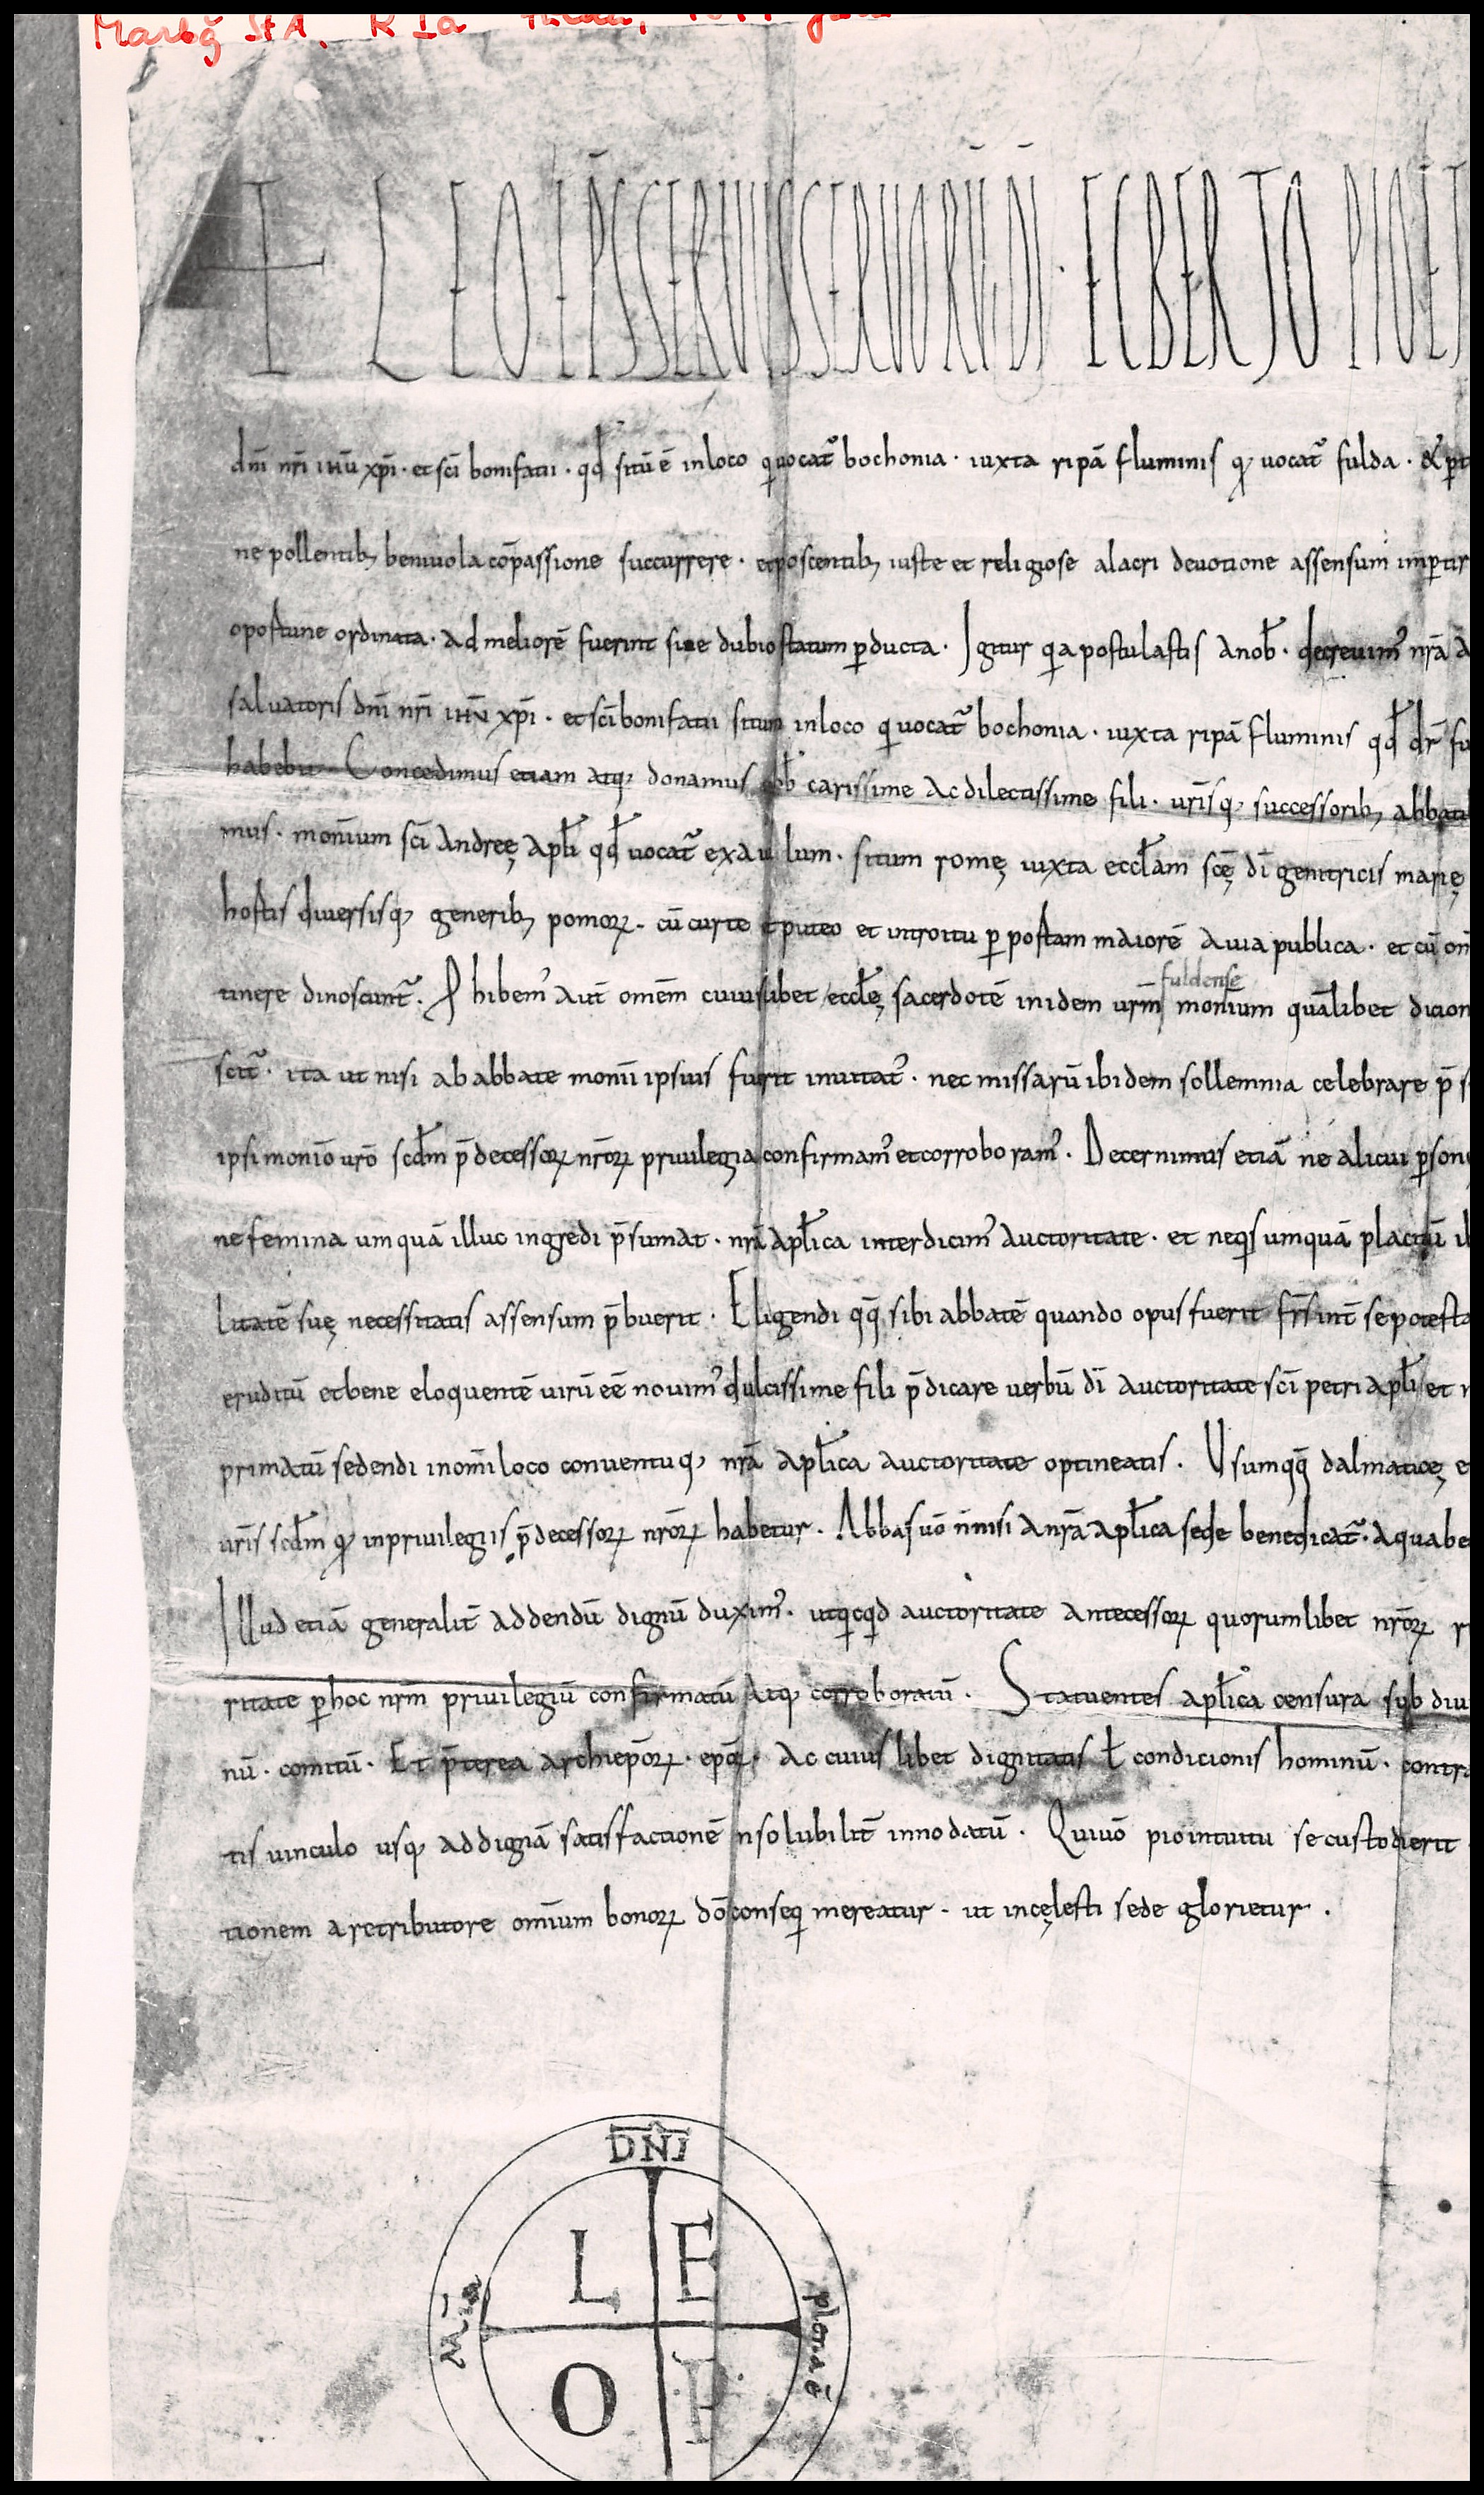 Marbg StA, R Ia
+ LEO EP̄S SERVUS SERVORŪ DĪ · ECBERTO
dn̄i nr̄i ihū xpī · et sc̄i bonifatii · qđ sitū ē inloco q uocat̄ bochonia · iuxta ripā fluminis q̨ uocat̄ fulda ·
ne pollentib; beniuola cōpassione succurrere · et poscentib; iuste et religiose alacri deuotione assensum
oportune ordinata · ad meliorē fuerint sine dubio statum ꝑducta · Igitur q̄a postulastis anob̄ · decreuim᾿ nr̄a
saluatoris dn̄i nr̄i ihū xpī · et sc̄i bonifatii situm inloco q uocat̄ bochonia · iuxta ripā fluminis qđ dr̄
habebit Concedimus etiam atq; donamus uob̄ carissime ac dilectissime fili · ur̄isq; successorib;
mus · monīum sc̄i Andreę apl̄i qđ uocat̄ exaulum · situm romę iuxta eccl̄am sc̄ę dī genitricis marię
hortis diuersisq; generib; pomoꝝ · cū curte et puteo et introitu ꝑ portam maiorē a uia publica · et cū
tinere dinoscunt̄ · Ꝓhibem᾿ aut̄ om̄em cuiuslibet eccl̄ę sacerdotē inidem ur̄m fuldense monīum quālibet
scit̄ · ita ut nisi ab abbate monīi ipsius fuerit inuitat᾿ · nec missarū ibidem sollemnia celebrare
ipsi monīo ur̄o scd̄m p̄decessoꝝ nr̄oꝝ priuilegia confirmam᾿ et corroboram᾿ · Decernimus etiā ne alicui
ne femina umquā illuc ingredi p̄sumat · nr̄a apl̄ica interdicim᾿ auctoritate · et neqs umquā placitū
litatē suę necessitatis assensum p̄buerit · Eligendi qq̄ sibi abbatē quando opus fuerit fr̄s int̄ se
eruditū et bene eloquentē uirū eē nouim᾿ dulcissime fili p̄dicare uerbū dī auctoritate sc̄i petri apl̄i et
primatū sedendi inom̄i loco conuentuq; nr̄a apl̄ica auctoritate optineatis · Usumqq̄ dalmaticę
ur̄is scd̄m q̨ inpriuilegiis p̄decessoꝝ nr̄oꝝ habetur · Abbas uō n̄nisi anr̄a apl̄ica sede benedicat̄ ·
Illud etiā generalit̄ addendū dignū duxim᾿ · utqicqid auctoritate antecessoꝝ quorumlibet nr̄oꝝ
ritate ꝑ hoc nr̄m priuilegiū confirmatū atq; corroboratū · Statuentes apl̄ica censura sub
nū · comitū · Et p̄terea archiep̄oꝝ · ep̄oꝝ · ac cuiuslibet dignitatis ł condicionis hominū ·
tis uinculo usq; ad dignā satisfactionē insolubilit̄ innodatū · Qui uō pio intuitu se custodierit
tionem a retributore om̄ium bonoꝝ dō conseq̄ mereatur · ut incęlesti sede glorietur ·
DN̄I
L E
O P
M̄ia
plena ē